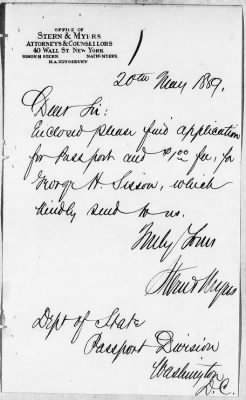 OFFICE OF
STERN & MYERS
ATTORNEYS & COUNSELLORS
40 WALL ST. NEW YORK
SIMON H. STERN. NATH. MYERS.
H. A. KINGSBURY
20th May 1889.
Dear Sir:
Enclosed please find application
for Passport and $1.00 fee, for
George H. Sisson, which
kindly send to us.
Truly Yours
Stern & Myers
Dept of State
Passport Division
Washington
D.C.